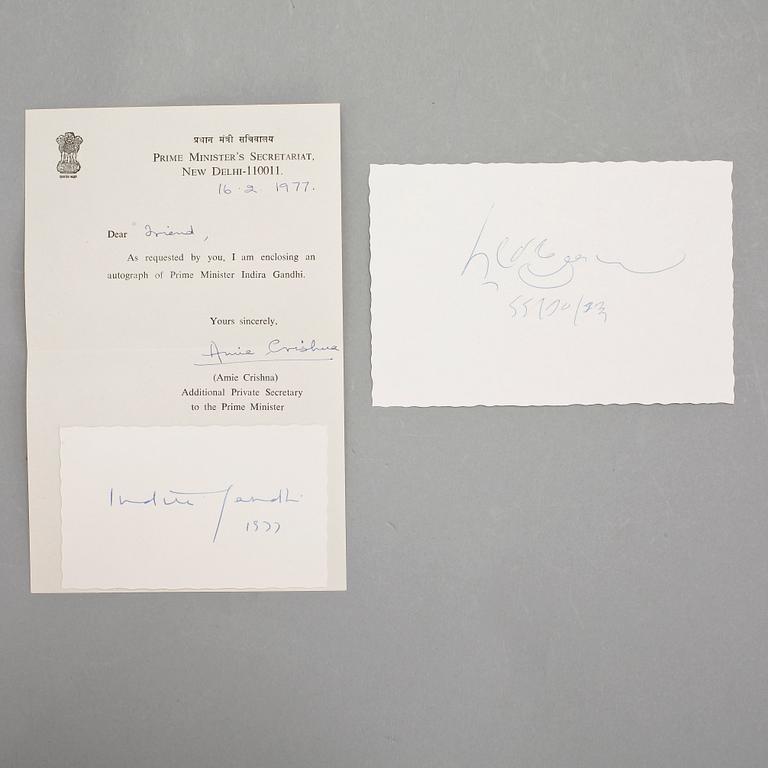 प्रधान मंत्री सचिवालय
PRIME MINISTER'S SECRETARIAT,
NEW DELHI-110011.
16.2.1977.
Dear Friend,
As requested by you, I am enclosing an
autograph of Prime Minister Indira Gandhi.
Yours sincerely,
Amie Crishna
(Amie Crishna)
Additional Private Secretary
to the Prime Minister
Indira Gandhi
1977